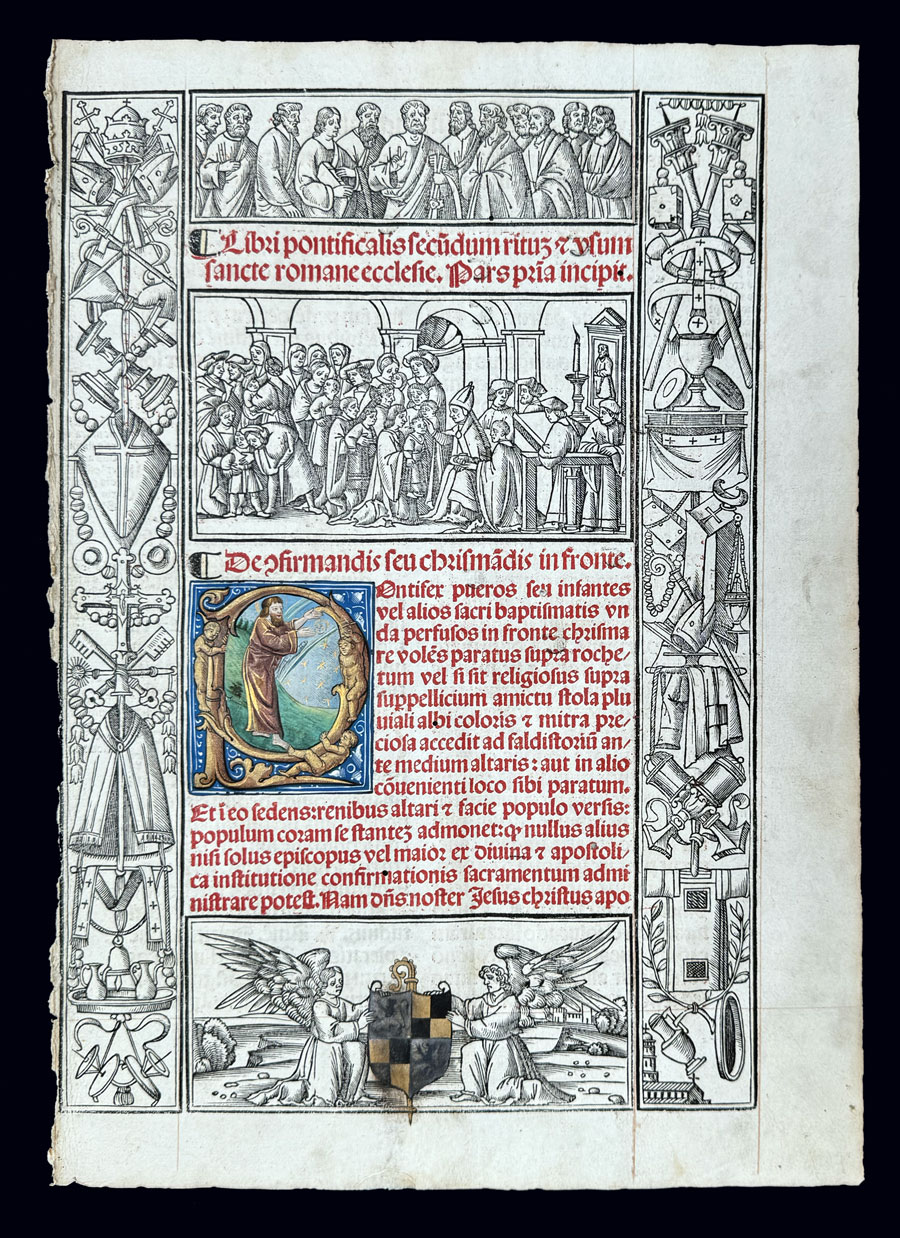 Libri pontificalis secūdum rituꝫ ⁊ vsum
sancte romane ecclesie. Pars pria incipit.
De ↄfirmandis seu chrismādis in fronte.
POntifex pueros seu infantes
vel alios sacri baptismatis vn
da perfusos in fronte chrisma
re volēs paratus supra roche⸗
tum vel si sit religiosus supra
suppellicium amictu stola plu
uiali albi coloris ⁊ mitra pre⸗
ciosa accedit ad faldistoriū an⸗
te medium altaris: aut in alio
cōuenienti loco sibi paratum.
Et ī eo sedens: renibus altari ⁊ facie populo versis:
populum coram se stanteꝫ admonet: ꝙ nullus alius
nisi solus episcopus vel maior ex diuina ⁊ apostoli⸗
ca institutione confirmationis sacramentum admi
nistrare potest. Nam dn̄s noster Jesus christus apo